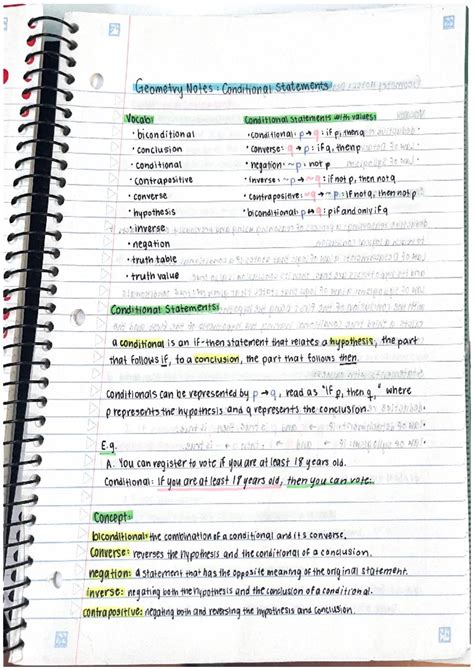 Geometry Notes: Conditional Statements
Vocab:
• biconditional
• conclusion
• conditional
• contrapositive
• converse
• hypothesis
• inverse
• negation
• truth table
• truth value
Conditional Statements with values:
• conditional: p→q: if p, then q
• converse: q→p: if q, then p
• negation: ~p: not p
• inverse: ~p→~q: if not p, then not q
• contrapositive: ~q→~p: if not q, then not p
• biconditional: p↔q: p if and only if q
Conditional Statements:
a conditional is an if-then statement that relates a hypothesis, the part
that follows if, to a conclusion, the part that follows then.
Conditionals can be represented by p→q, read as "if p, then q," where
p represents the hypothesis and q represents the conclusion.
E.g.
A. You can register to vote if you are at least 18 years old.
Conditional: If you are at least 18 years old, then you can vote.
Concept:
biconditional: the combination of a conditional and its converse.
converse: reverses the hypothesis and the conditional of a conclusion.
negation: a statement that has the opposite meaning of the original statement.
inverse: negating both the hypothesis and the conclusion of a conditional.
contrapositive: negating both and reversing the hypothesis and conclusion.